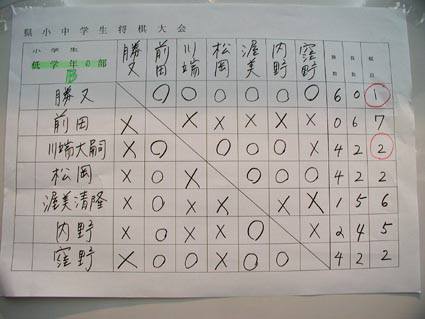 県小中学生将棋大会
小学生
低学年の部
B
勝又 前田 川端 松岡 渥美 内野 窪野 勝数 負数 順位
勝又 ○ ○ ○ ○ ○ ○ 6 0 1
前田 × × × × × × 0 6 7
川端大嗣 × ○ ○ ○ ○ × 4 2 2
松岡 × ○ × ○ ○ ○ 4 2 2
渥美清隆 × ○ × × × × 1 5 6
内野 × ○ × × ○ × 2 4 5
窪野 × ○ ○ × ○ ○ 4 2 2